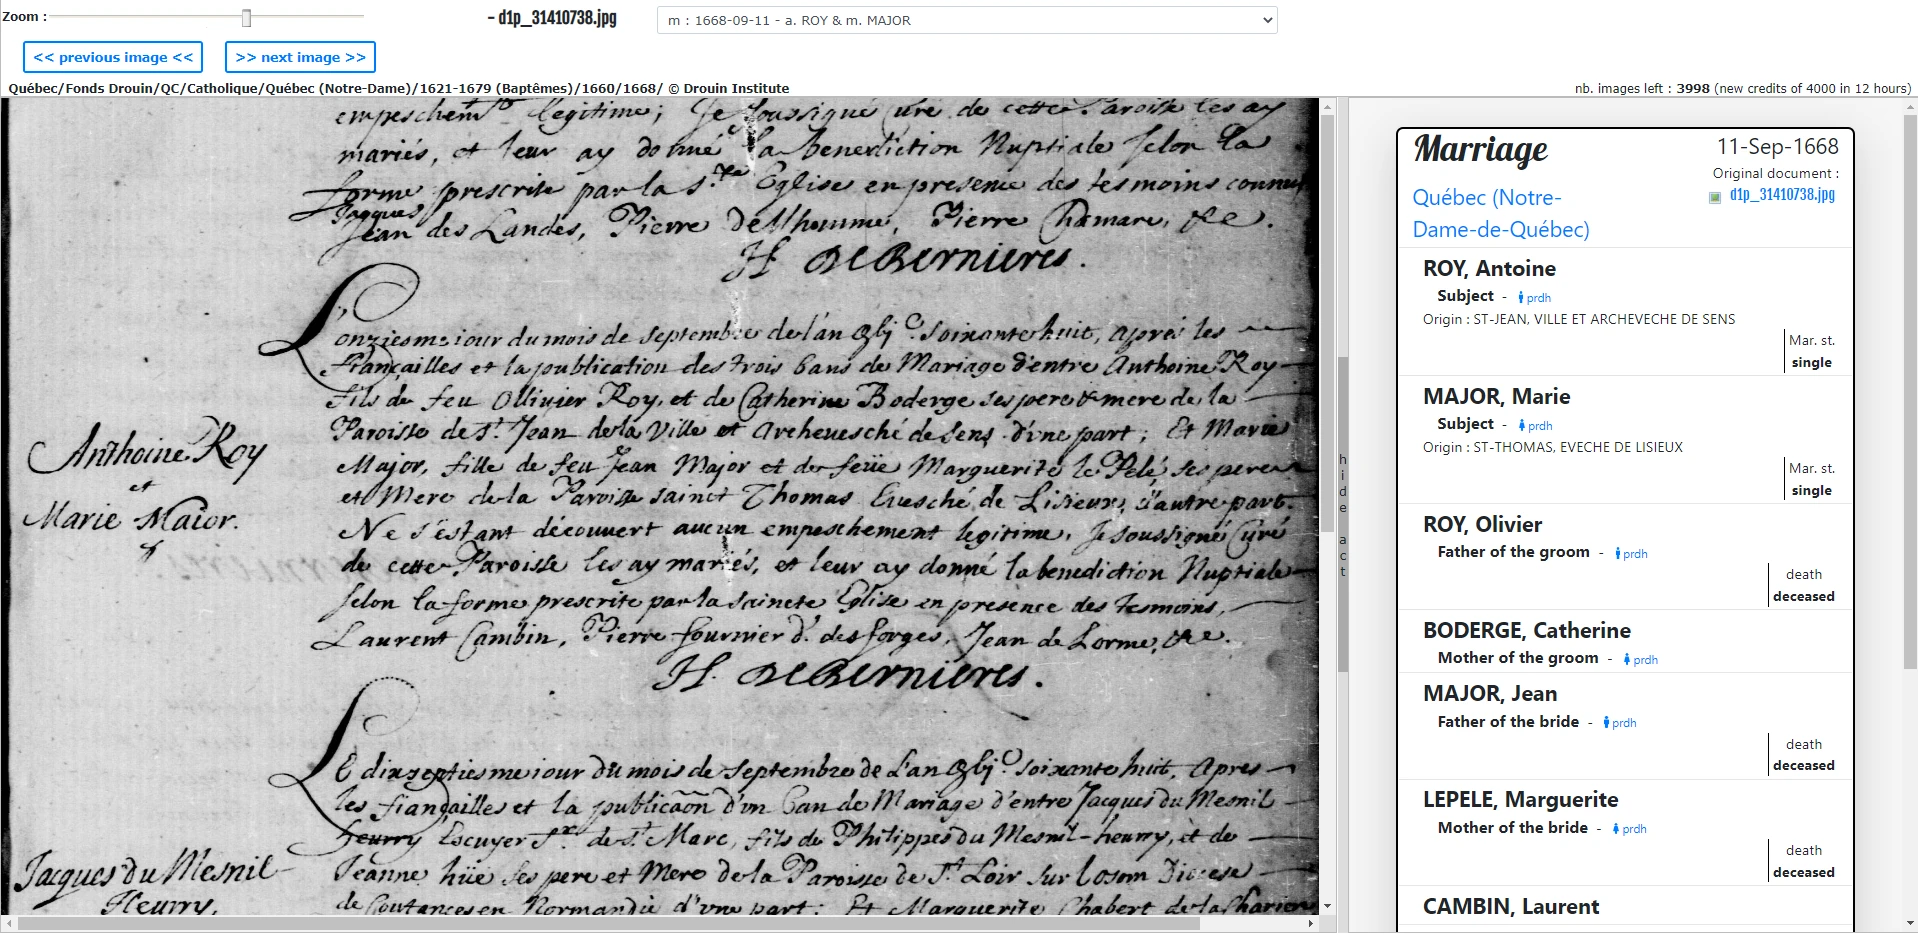 Zoom :
– d1p_31410738.jpg
m : 1668-09-11 - a. ROY & m. MAJOR
<< previous image <<
>> next image >>
Québec/Fonds Drouin/QC/Catholique/Québec (Notre-Dame)/1621-1679 (Baptêmes)/1660/1668/ © Drouin Institute
nb. images left : 3998 (new credits of 4000 in 12 hours)
empeschemt legitime; Je soussigné Curé de cette Paroisse les ay
mariés, et leur ay donné la benediction Nuptiale selon la
forme prescrite par la Ste Eglise en presence des tesmoins connus
Jacques
Jean des Landes, Pierre deVhomme, Pierre Chamare, &c.
H. DeBernieres.
L'onziesme iour du mois de septembre de l'an soixante huit, apres les
fiançailles et la publication des trois bans de Mariage d'entre Anthoine Roy
fils de feu Ollivier Roy, et de Catherine Boderge ses pere & mere de la
Paroisse de St. Jean de la Ville et Archevesché de Sens d'une part; Et Marie
Major, fille de feu Jean Major et de feüe Marguerite le Pelé ses pere
et Mere de la Paroisse sainct Thomas Evesché de Lisieux d'autre part.
Ne s'estant découvert aucun empeschement legitime, Je soussigné Curé
de cette Paroisse les ay mariés, et leur ay donné la benediction Nuptiale
selon la forme prescrite par la saincte Eglise en presence des tesmoins,
Laurent Cambin, Pierre fournier d. des forges, Jean de Lorme, &c.
H. DeBernieres.
Anthoine Roy
et
Marie Maior.
Le dixseptiesme iour du mois de septembre de l'an soixante huit, Apres
les fiançailles et la publicãon d'vn ban de Mariage d'entre Jacques du Mesnil
heurry Escuyer Sr. de St. Marc, fils de Philippes du Mesnil-heurry, et de
Jeanne hüe ses pere et Mere de la Paroisse de St. Loir sur Diocese
de Coutances en Normandie d'vne part; Et Marguerite Chabert de la
Jacques du Mesnil
Heurry,
hide act
Marriage
11-Sep-1668
Original document :
d1p_31410738.jpg
Québec (Notre-
Dame-de-Québec)
ROY, Antoine
Subject - prdh
Origin : ST-JEAN, VILLE ET ARCHEVECHE DE SENS
Mar. st.
single
MAJOR, Marie
Subject - prdh
Origin : ST-THOMAS, EVECHE DE LISIEUX
Mar. st.
single
ROY, Olivier
Father of the groom - prdh
death
deceased
BODERGE, Catherine
Mother of the groom - prdh
MAJOR, Jean
Father of the bride - prdh
death
deceased
LEPELE, Marguerite
Mother of the bride - prdh
death
deceased
CAMBIN, Laurent